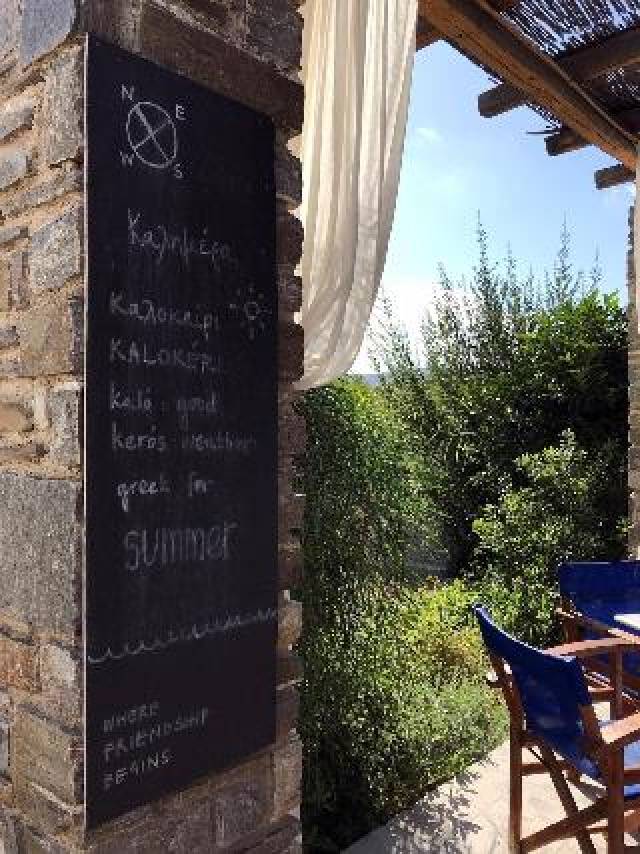 N
E
W
S
Καλημέρα
Καλοκαίρι
KALOKÉRI
kaló : good
kerós weather
greek for
summer
WHERE
FRIENDSHIP
BEGINS